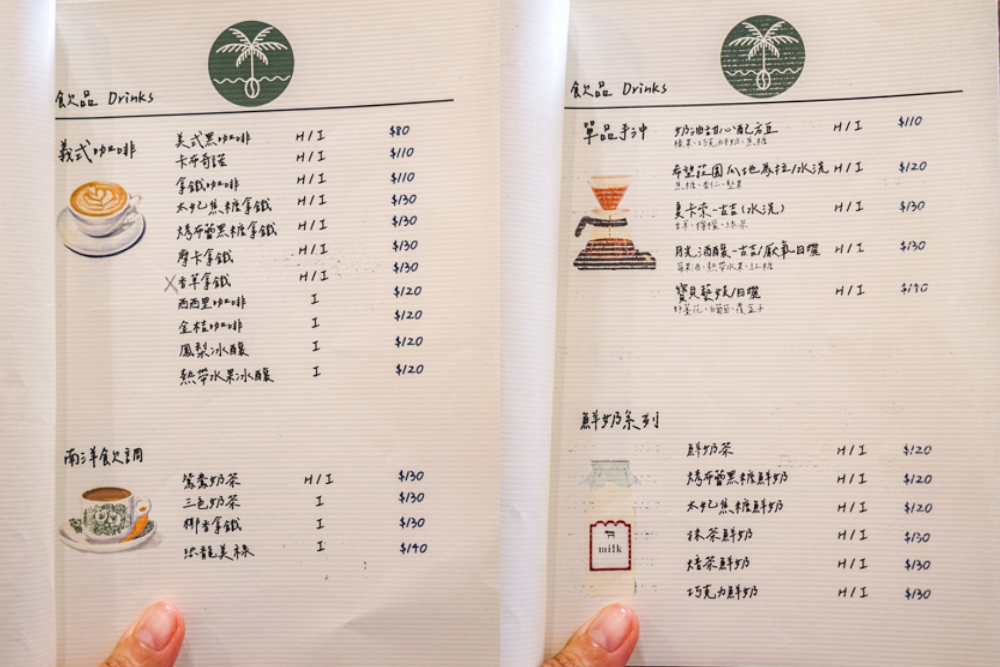 飲品 Drinks
義式咖啡
美式黑咖啡 H / I $80
卡布奇諾 H / I $110
拿鐵咖啡 H / I $110
太妃焦糖拿鐵 H / I $130
烤布蕾黑糖拿鐵 H / I $130
摩卡拿鐵 H / I $130
X香草拿鐵 H / I $130
西西里咖啡 I $120
金桔咖啡 I $120
鳳梨冰釀 I $120
熱帶水果冰釀 I $120
南洋飲調
鴛鴦奶茶 H / I $130
三色奶茶 I $130
椰香拿鐵 I $130
恐龍美祿 I $140
飲品 Drinks
單品手沖
奶油甜心配方豆 H / I $110
榛果、巧克力、焦糖
希望莊園 瓜地馬拉/水洗 H / I $120
焦糖、杏仁、堅果
夏卡索-古吉(水洗) H / I $130
檸檬、綠茶
月光酒釀-古吉/厭氧日曬 H / I $130
莓果酒、熱帶水果、紅糖
寶貝藝妓/日曬 H / I $190
野薑花、葡萄、覆盆子
鮮奶系列
鮮奶茶 H / I $120
烤布蕾黑糖鮮奶 H / I $120
太妃焦糖鮮奶 H / I $120
抹茶鮮奶 H / I $130
焙茶鮮奶 H / I $130
巧克力鮮奶 H / I $130
milk